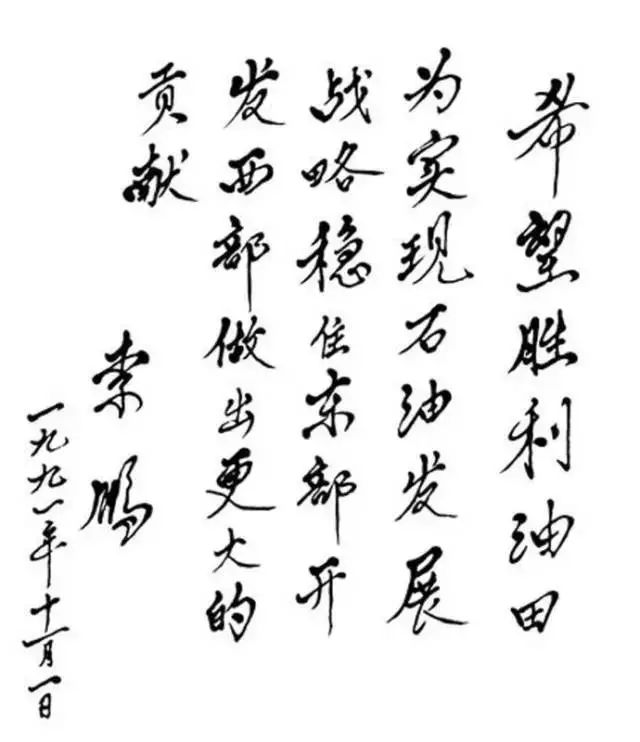 希望胜利油田
为实现石油发展
战略稳住东部开
发西部做出更大的
贡献
李鹏
一九九一年十一月一日